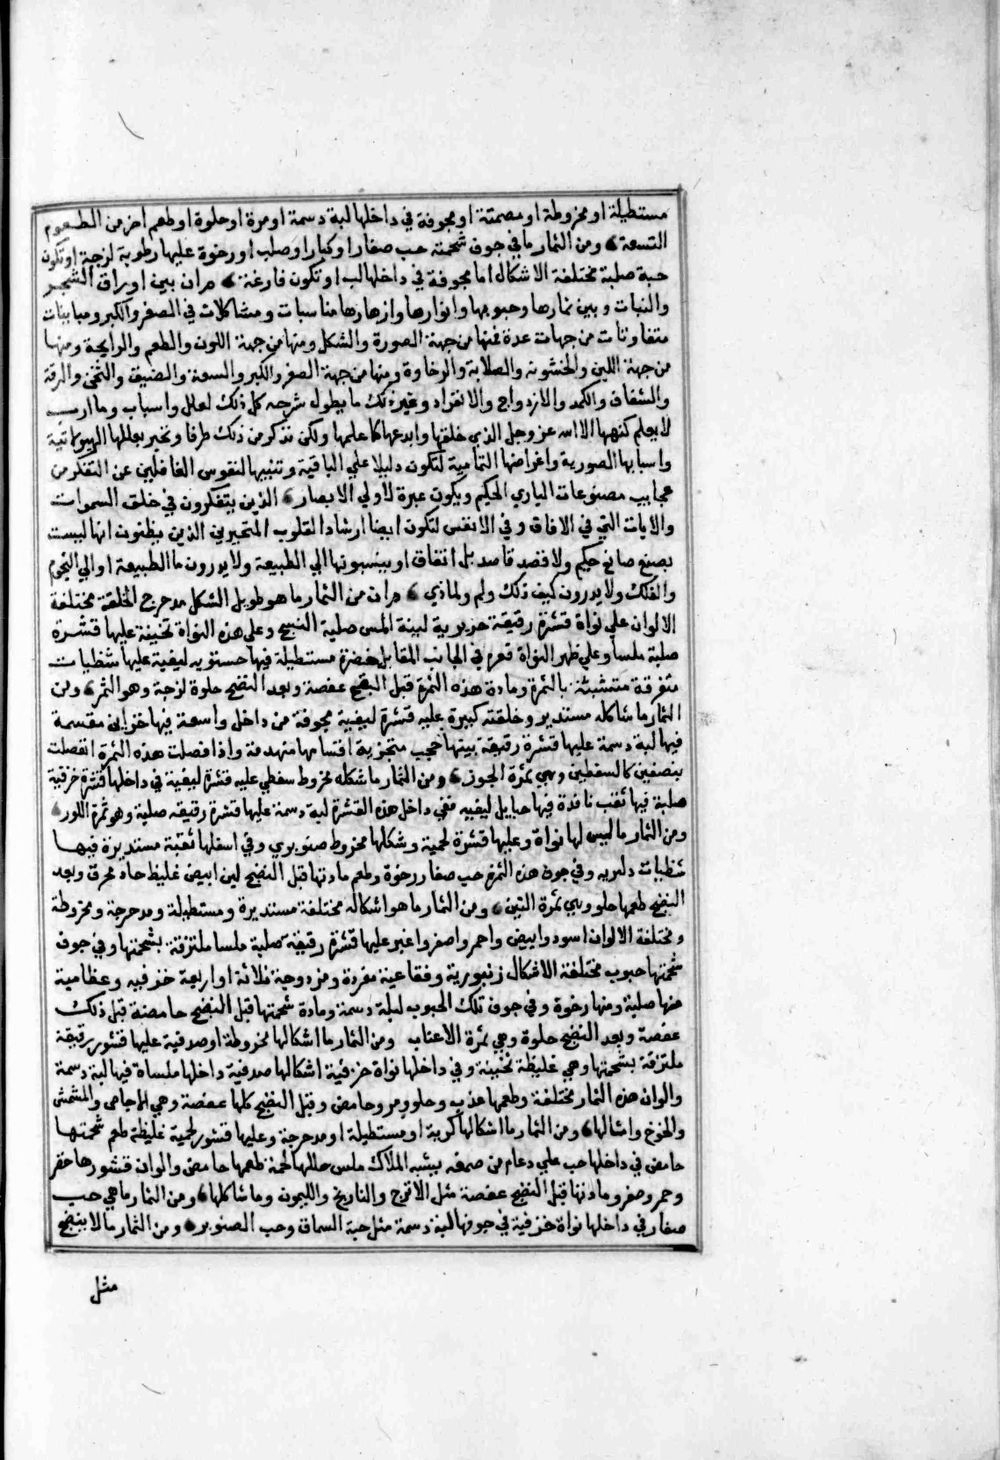 مستطيلة او مخروطة او مصمتة او مجوفة في داخلها لبة دسمة او مرة او حلوة او طعم اخر من الطعوم
التسعة ومن الثمار ما في جوف شحمته حب صغارا وكبارا وصلب او رخوة عليها رطوبة لزجة او تكون
حبة صلبة مختلفة الاشكال اما مجوفة في داخلها لب او تكون فارغة ثم ان بين اوراق الشجر
والنبات وبين ثمارها وحبوبها وانوارها وازهارها مناسبات ومشاكلات في الصغر والكبر ومباينات
متفاوتات من جهات عدة فمنها من جهة الصورة والشكل ومنها من جهة اللون والطعم والرايحة ومنها
من جهة اللين والخشونة والصلابة والرخاوة ومنها من جهة الصغر والكبر والسعة والضيق والثخن والرقة
والشفاف والكمد والازدواج والانفراد وغير ذلك ما يطول شرحه كل ذلك لعلل واسباب وما ارب
لا يعلم كنهها الا الله عز وجل الذي خلقها وابدعها كما علمها ولكن نذكر من ذلك طرفا ونخبر بعللها الهيولانية
واسبابها الصورية واغراضها التمامية لتكون دليلا علي الباقية وتنبيها لنفوس الغافلين عن التفكر من
عجايب مصنوعات الباري الحكيم ويكون عبرة لاولي الابصار الذين يتفكرون في خلق السموات
والايات التي في الافاق وفي الانفس لتكون ايضا ارشادا لقلوب المتحيرين الذين يظنون انها ليست
بصنع صانع حكيم ولا قصد قاصد بل اتفاق او ينسبونها الي الطبيعة ولا يدرون ما الطبيعة او الي النجوم
والفلك ولا يدرون كيف ذلك ولم ولماذي ثم ان من الثمار ما هو طويل الشكل مدحرج الخلقة مختلفة
الالوان علي نواة قشرة رقيقة حريرية لينة المس صلبة النسج وعلي هذه النواة ثخينة عليها قشرة
صلبة ملسا وعلي ظهر النواة نقرة في الجانب المقابل حفرة مستطيلة فيها حستويه ليفية عليها شظيات
متفرقة متشبثة بالثمرة ومادة هذه الثمرة قبل النضج عفصة وبعد النضج حلوة لزجة وهو التمر ومن
الثمار ما شاكله مستدير وخلقته كبيرة عليه قشرة ليفية مجوفة من داخل واسعة فيها خزاين مقسمة
فيها لبة دسمة عليها قشرة رقيقة بينها حجب متجزية اقسامها منهدمة واذا فصلت هذه الثمرة انفصلت
بنصفين كالسفطين وهي ثمرة الجوز ومن الثمار ما شكله مخروط سفطي عليه قشرة ليفية في داخلها قشرة خزفية
صلبة فيها ثقب نافدة فيها حبايل ليفية ففي داخل هذه القشرة لبة دسمة عليها قشرة رقيقة صلبة وهو ثمرة اللوز
ومن الثمار ما ليس لها نواة وعليها قشرة لحمية وشكلها مخروط صنوبري وفي اسفلها ثقبة مستديرة فيها
شظيات وفي جوف هذه الثمرة حب صغار رخوة وطعم مادتها قبل النضج لبن ابيض غليظ حاد محرق وبعد
النضج طعمها حلو وهي ثمرة التين ومن الثمار ما هو اشكاله مختلفة مستديرة ومستطيلة ومدحرجة ومخروطة
ومختلفة الالوان اسود وابيض واحمر واصفر واغبر عليها قشرة رقيقة صلبة ملسا ملتزقة بشحمتها وفي جوف
شحمتها حبوب مختلفة الاشكال زنبورية وفقاعية مفردة ومزدوجة ثلاثة او اربعة خزفيه وعظامية
منها صلبة ومنها رخوة وفي جوف تلك الحبوب لبلة دسمة ومادة شحمتها قبل النضج حامضة قبل ذلك
عفصة وبعد النضج حلوة وهي ثمرة الاعناب ومن الثمار ما اشكالها مخروطة او صدفية عليها قشور رقيقة
ملتزقة بشحمتها وهي غليظة ثخينة وفي داخلها نواة خزفية اشكالها صدفية داخلها ملساة فيها لبة دسمة
والوان هذه الثمار مختلفة وطعمها عذب وحلو ومر وحامض وقبل النضج كلها عفصة وهي الاجاص والمشمش
والخوخ وامثالها ومن الثمار ما اشكالها كرية او مستطيلة او مدحرجة وعليها قشور لحمية غليظة طعم شحمتها
حامض في داخلها حب علي دعام من صمغه يشبه الملاك ملس خلالها لحمة طعمها حامض والوان قشورها خضر
وحمر وصفر ومادتها قبل النضج عفصة مثل الاترج والنارنج والليمون وما شاكلها ومن الثمار ما هي حب
صغار في داخلها نواة خزفية في جوفها لبة دسمة مثل حبة السماق وحب الصنوبر ومن الثمار ما لا ينضج
مثل